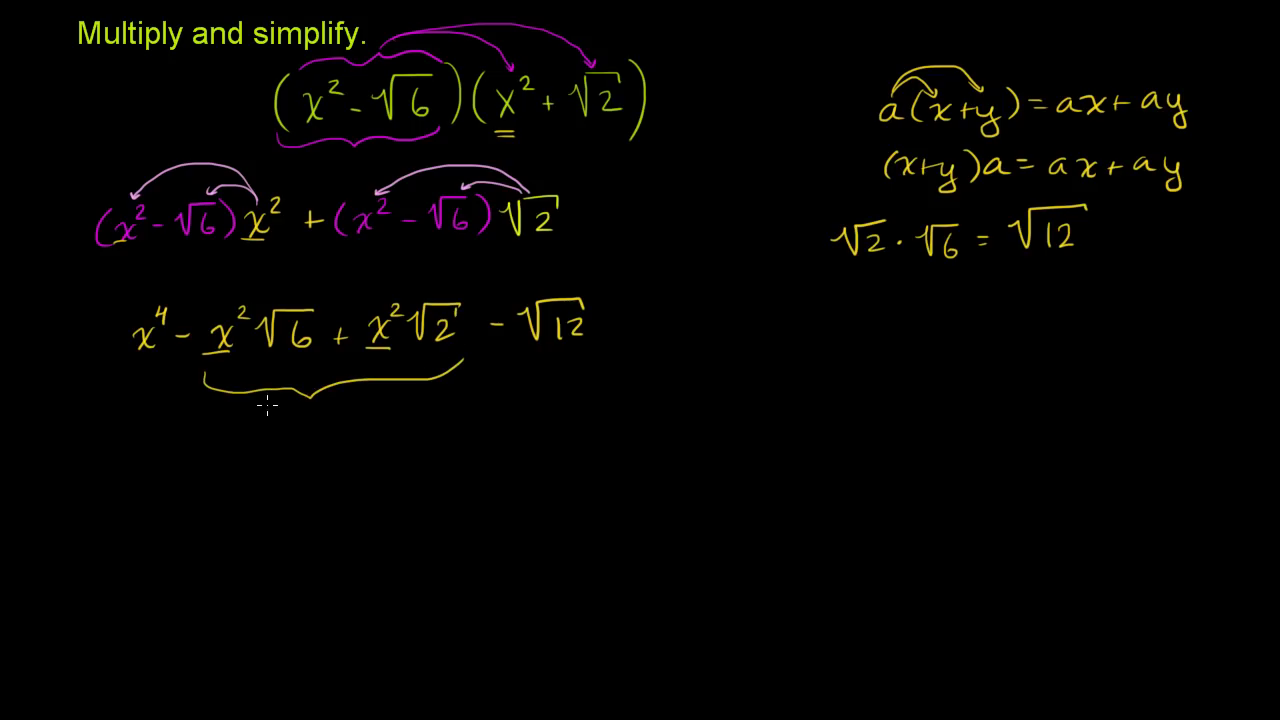 Multiply and simplify.
(x² - √6)(x² + √2)
(x² - √6)x² + (x² - √6)√2
x⁴ - x²√6 + x²√2 - √12
a(x+y) = ax + ay
(x+y)a = ax + ay
√2 · √6 = √12